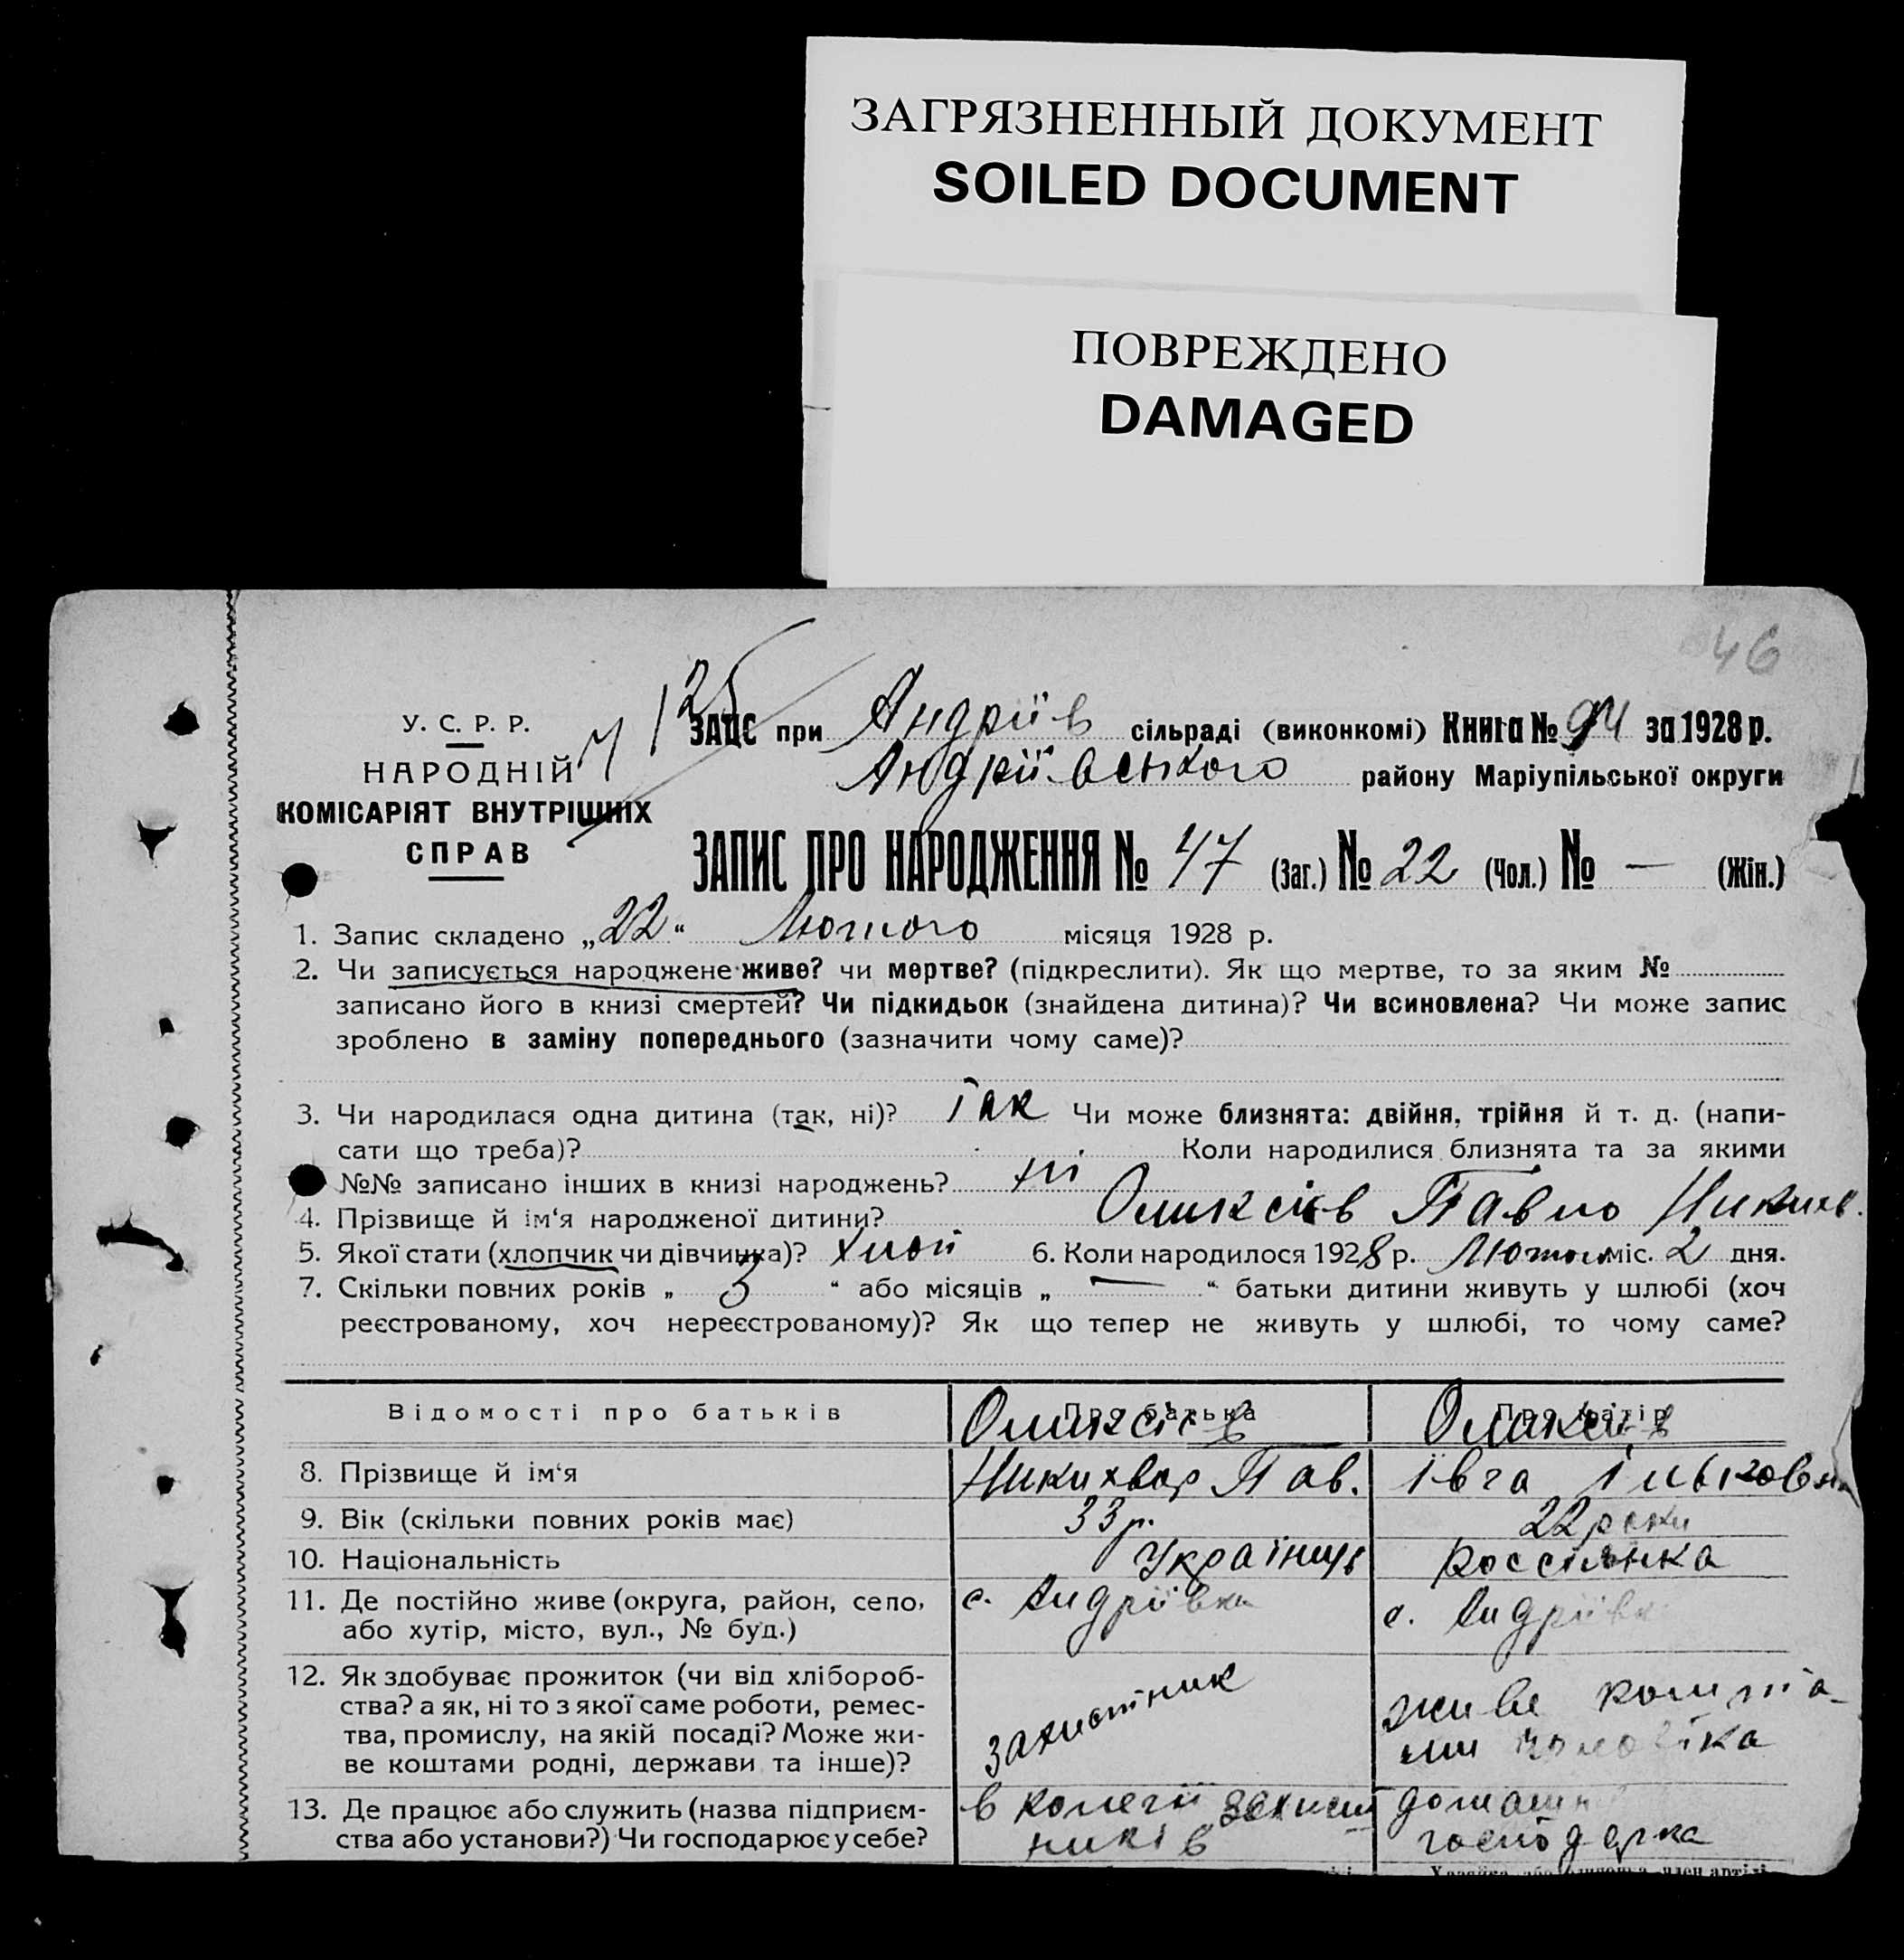 ЗАГРЯЗНЕННЫЙ ДОКУМЕНТ
SOILED DOCUMENT
ПОВРЕЖДЕНО
DAMAGED
46
У. С. Р. Р.
НАРОДНІЙ
КОМІСАРІЯТ ВНУТРІШНІХ
СПРАВ
125
ЗАЦС при Андріїв сільраді (виконкомі) Книга № 94 за 1928 р.
Андріївського району Маріупільської округи
ЗАПИС ПРО НАРОДЖЕННЯ № 47 (Заг.) № 22 (Чол.) № — (Жін.)
1. Запис складено „22“ Лютого місяця 1928 р.
2. Чи записується народжене живе? чи мертве? (підкреслити). Як що мертве, то за яким №
записано його в книзі смертей? Чи підкидьок (знайдена дитина)? Чи всиновлена? Чи може запис
зроблено в заміну попереднього (зазначити чому саме)?
3. Чи народилася одна дитина (так, ні)? Так Чи може близнята: двійня, трійня й т. д. (напи-
сати що треба)? Коли народилися близнята та за якими
№№ записано інших в книзі народжень? ні
4. Прізвище й ім‘я народженої дитини? Оликсіїв Павло
5. Якої стати (хлопчик чи дівчинка)? 6. Коли народилось 1928 р. міс. 2 дня.
7. Скільки повних років „ 3 “ або місяців „ — “ батьки дитини живуть у шлюбі (хоч
реєстрованому, хоч нереєстрованому)? Як що тепер не живуть у шлюбі, то чому саме?
Відомості про батьків Про батька Про матір
8. Прізвище й ім‘я Никихвор Пав. Івга Ільковна
9. Вік (скільки повних років має) 33 р. 22 роки
10. Національність Українць Россіянка
11. Де постійно живе (округа, район, село, с. Андріївки с. Андріївк
або хутір, місто, вул., № буд.)
12. Як здобуває прожиток (чи від хлібороб-
ства? а як, ні то з якої саме роботи, ремес- захистник живе кошта-
тва, промислу, на якій посаді? Може жи- ми чоловіка
ве коштами родні, держави та інше)?
13. Де працює або служить (назва підприєм- в колегії захист домашн
ства або установи?) Чи господарює у себе? ників господарка